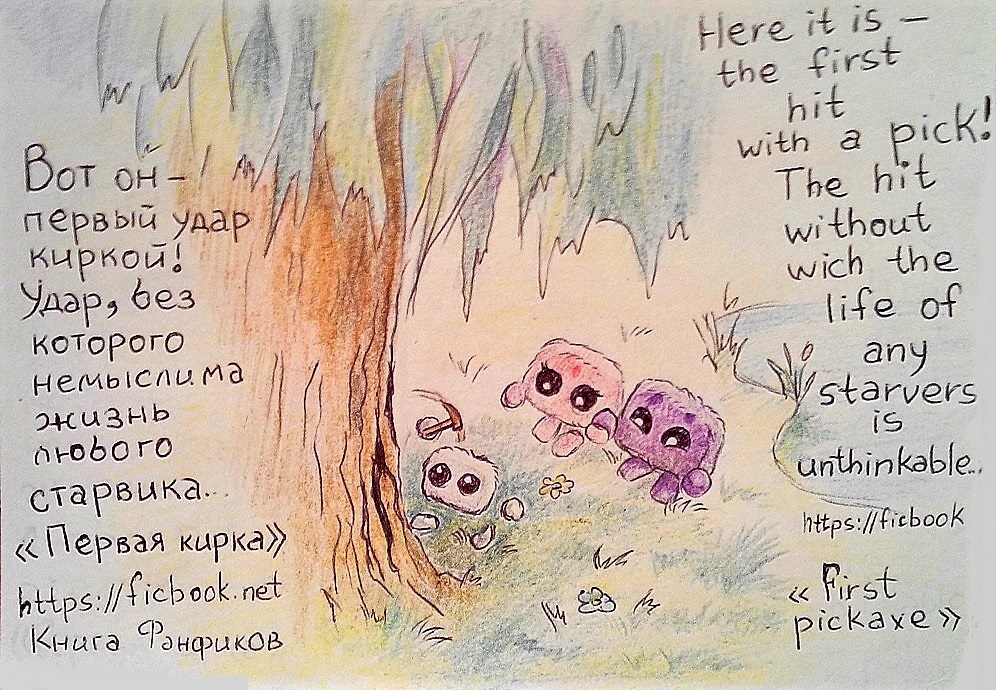 Вот он –
первый удар
киркой!
Удар, без
которого
немыслима
жизнь
любого
старвика...
«Первая кирка»
https://ficbook.net
Книга Фанфиков
Here it is –
the first
hit
with a pick!
The hit
without
wich the
life of
any
starvers
is
unthinkable...
https://ficbook
«First
pickaxe»